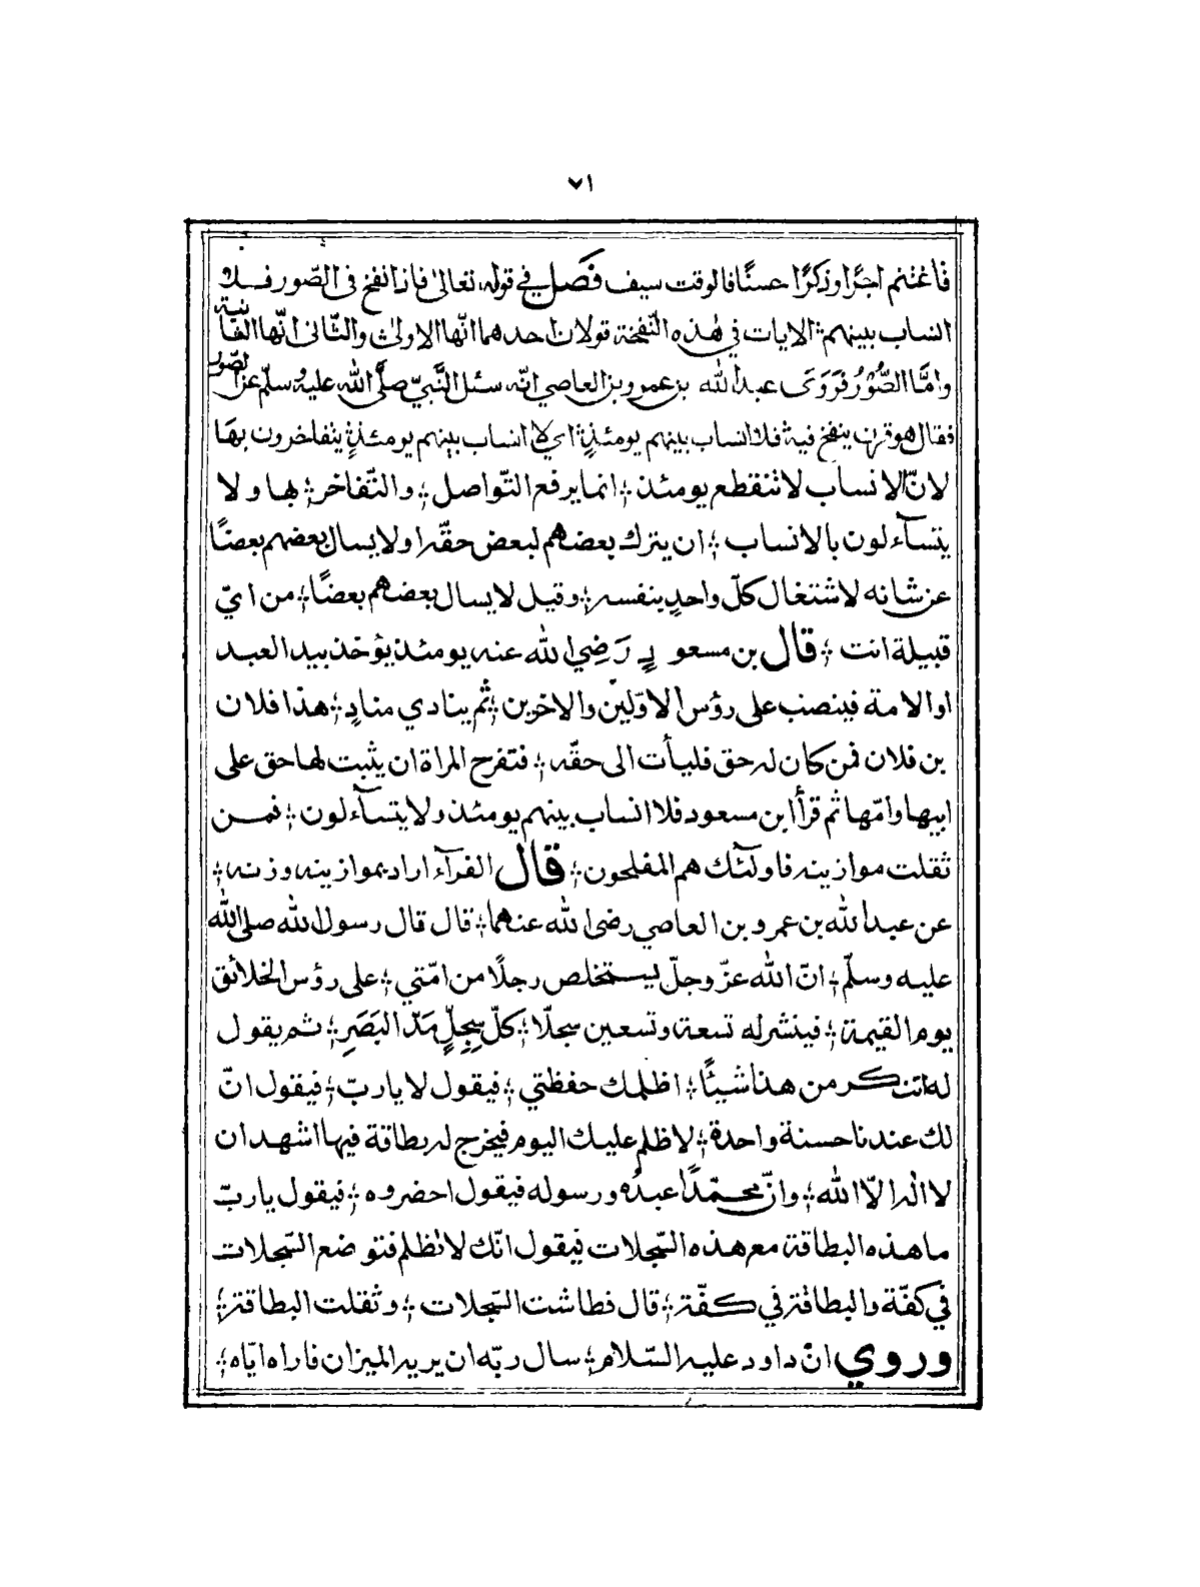 ٧١
فاغتنم اجرًا وذكرًا حسنًا فالوقت سيف فصل في قوله تعالى فاذا نفخ في الصّور فلا
انساب بينهم ؛ الايات في هذه النّفخة قولان احدهما انّها الاولى والثّاني انّها الثانية
وامّا الصُّوْرُ فَرَوَى عبد الله بن عمرو بن العاصي انّه سئل النّبيّ صلّى الله عليه وسلّم عن الصّور
فقال هو قرن ينفخ فيه فلا انساب بينهم يومئذٍ اي لا انساب بينهم يومئذٍ يتفاخرون بها
لانّ الانساب لا تنقطع يومئذ ؛ انما يرفع التّواصل ؛ والتّفاخر ؛ بها ولا
يتسآءلون بالانساب ؛ ان يترك بعضهم لبعض حقّه او لا يسال بعضهم بعضًا
عن شانه لاشتغال كلّ واحدٍ بنفسه ؛ وقيل لا يسال بعضهم بعضًا ؛ من ايّ
قبيلة انت ؛ قال بن مسعودٍ رَضِيَ الله عنه يومئذ يؤخذ بيد العبد
او الامة فينصب على رؤس الاوّلين والاخرين ؛ ثم ينادي منادٍ ؛ هذا فلان
بن فلان فمن كان له حق فليأت الى حقّه ؛ فتفرح المراة ان يثبت لها حق على
ابيها وامّها ثم قرأ ابن مسعود فلا انساب بينهم يومئذ ولا يتسآءلون ؛ فمن
ثقلت موازينه فاولئك هم المفلحون ؛ قال الفرآء اراد بموازينه وزنه ؛
عن عبد الله بن عمرو بن العاصي رضي الله عنهما ؛ قال قال رسول الله صلى الله
عليه وسلّم ؛ انّ الله عزّ وجلّ يستخلص رجلًا من امّتي ؛ على رؤس الخلائق
يوم القيمة ؛ فينشر له تسعة وتسعين سجلّا ؛ كلّ سِجِلٍّ مَدّ البَصَرِ ؛ ثم يقول
له اتنكر من هذا شيئًا ؛ اظلمك حفظتي ؛ فيقول لا يا ربّ ؛ فيقول انّ
لك عندنا حسنة واحدة ؛ لا ظلم عليك اليوم فيخرج له بطاقة فيها اشهد ان
لا اله الّا الله ؛ وانّ محمّدًا عبدُه ورسوله فيقول احضروه ؛ فيقول يا ربّ
ما هذه البطاقة مع هذه السّجلات فيقول انّك لا تظلم فتوضع السّجلات
في كفّة والبطاقة في كفّة ؛ قال فطاشت السّجلات ؛ وثقلت البطاقة ؛
وروي انّ داود عليه السّلام ؛ سال ربّه ان يريه الميزان فاراه ايّاه ؛